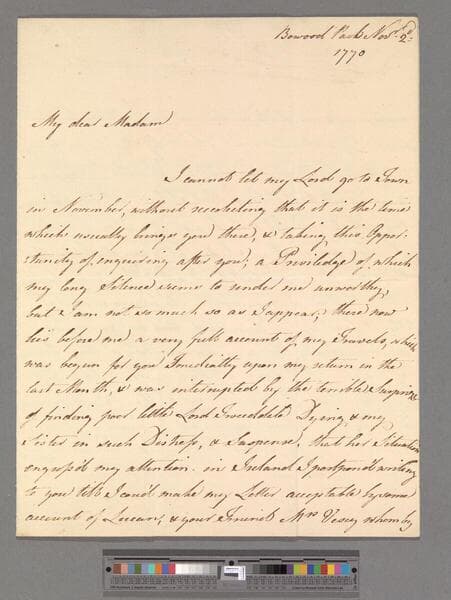 Bowood Park Nov.r 2.d
1770
My dear Madam
I cannot let my Lord go to Town
in November, without recollecting that it is the time
which usually brings you there, & taking this Oppor-
tunity of enquiring after you; a Priviledge of which
my long Silence seems to render me unworthy,
but I am not so much so as I appear; there now
lies before me a very full account of my Travels, which
was begun for you Imediatly upon my return in the
last Month, & was interrupted by the terrible Surprise
of finding poor little Lord Dying & my
Sister in such Distress, & Suspense, that her Situation
engross'd my attention. in Ireland I postpon'd writing
to you till I cou'd make my Letter acceptable by some
account of Lucan, & your Friend Mrs Vesey whom by